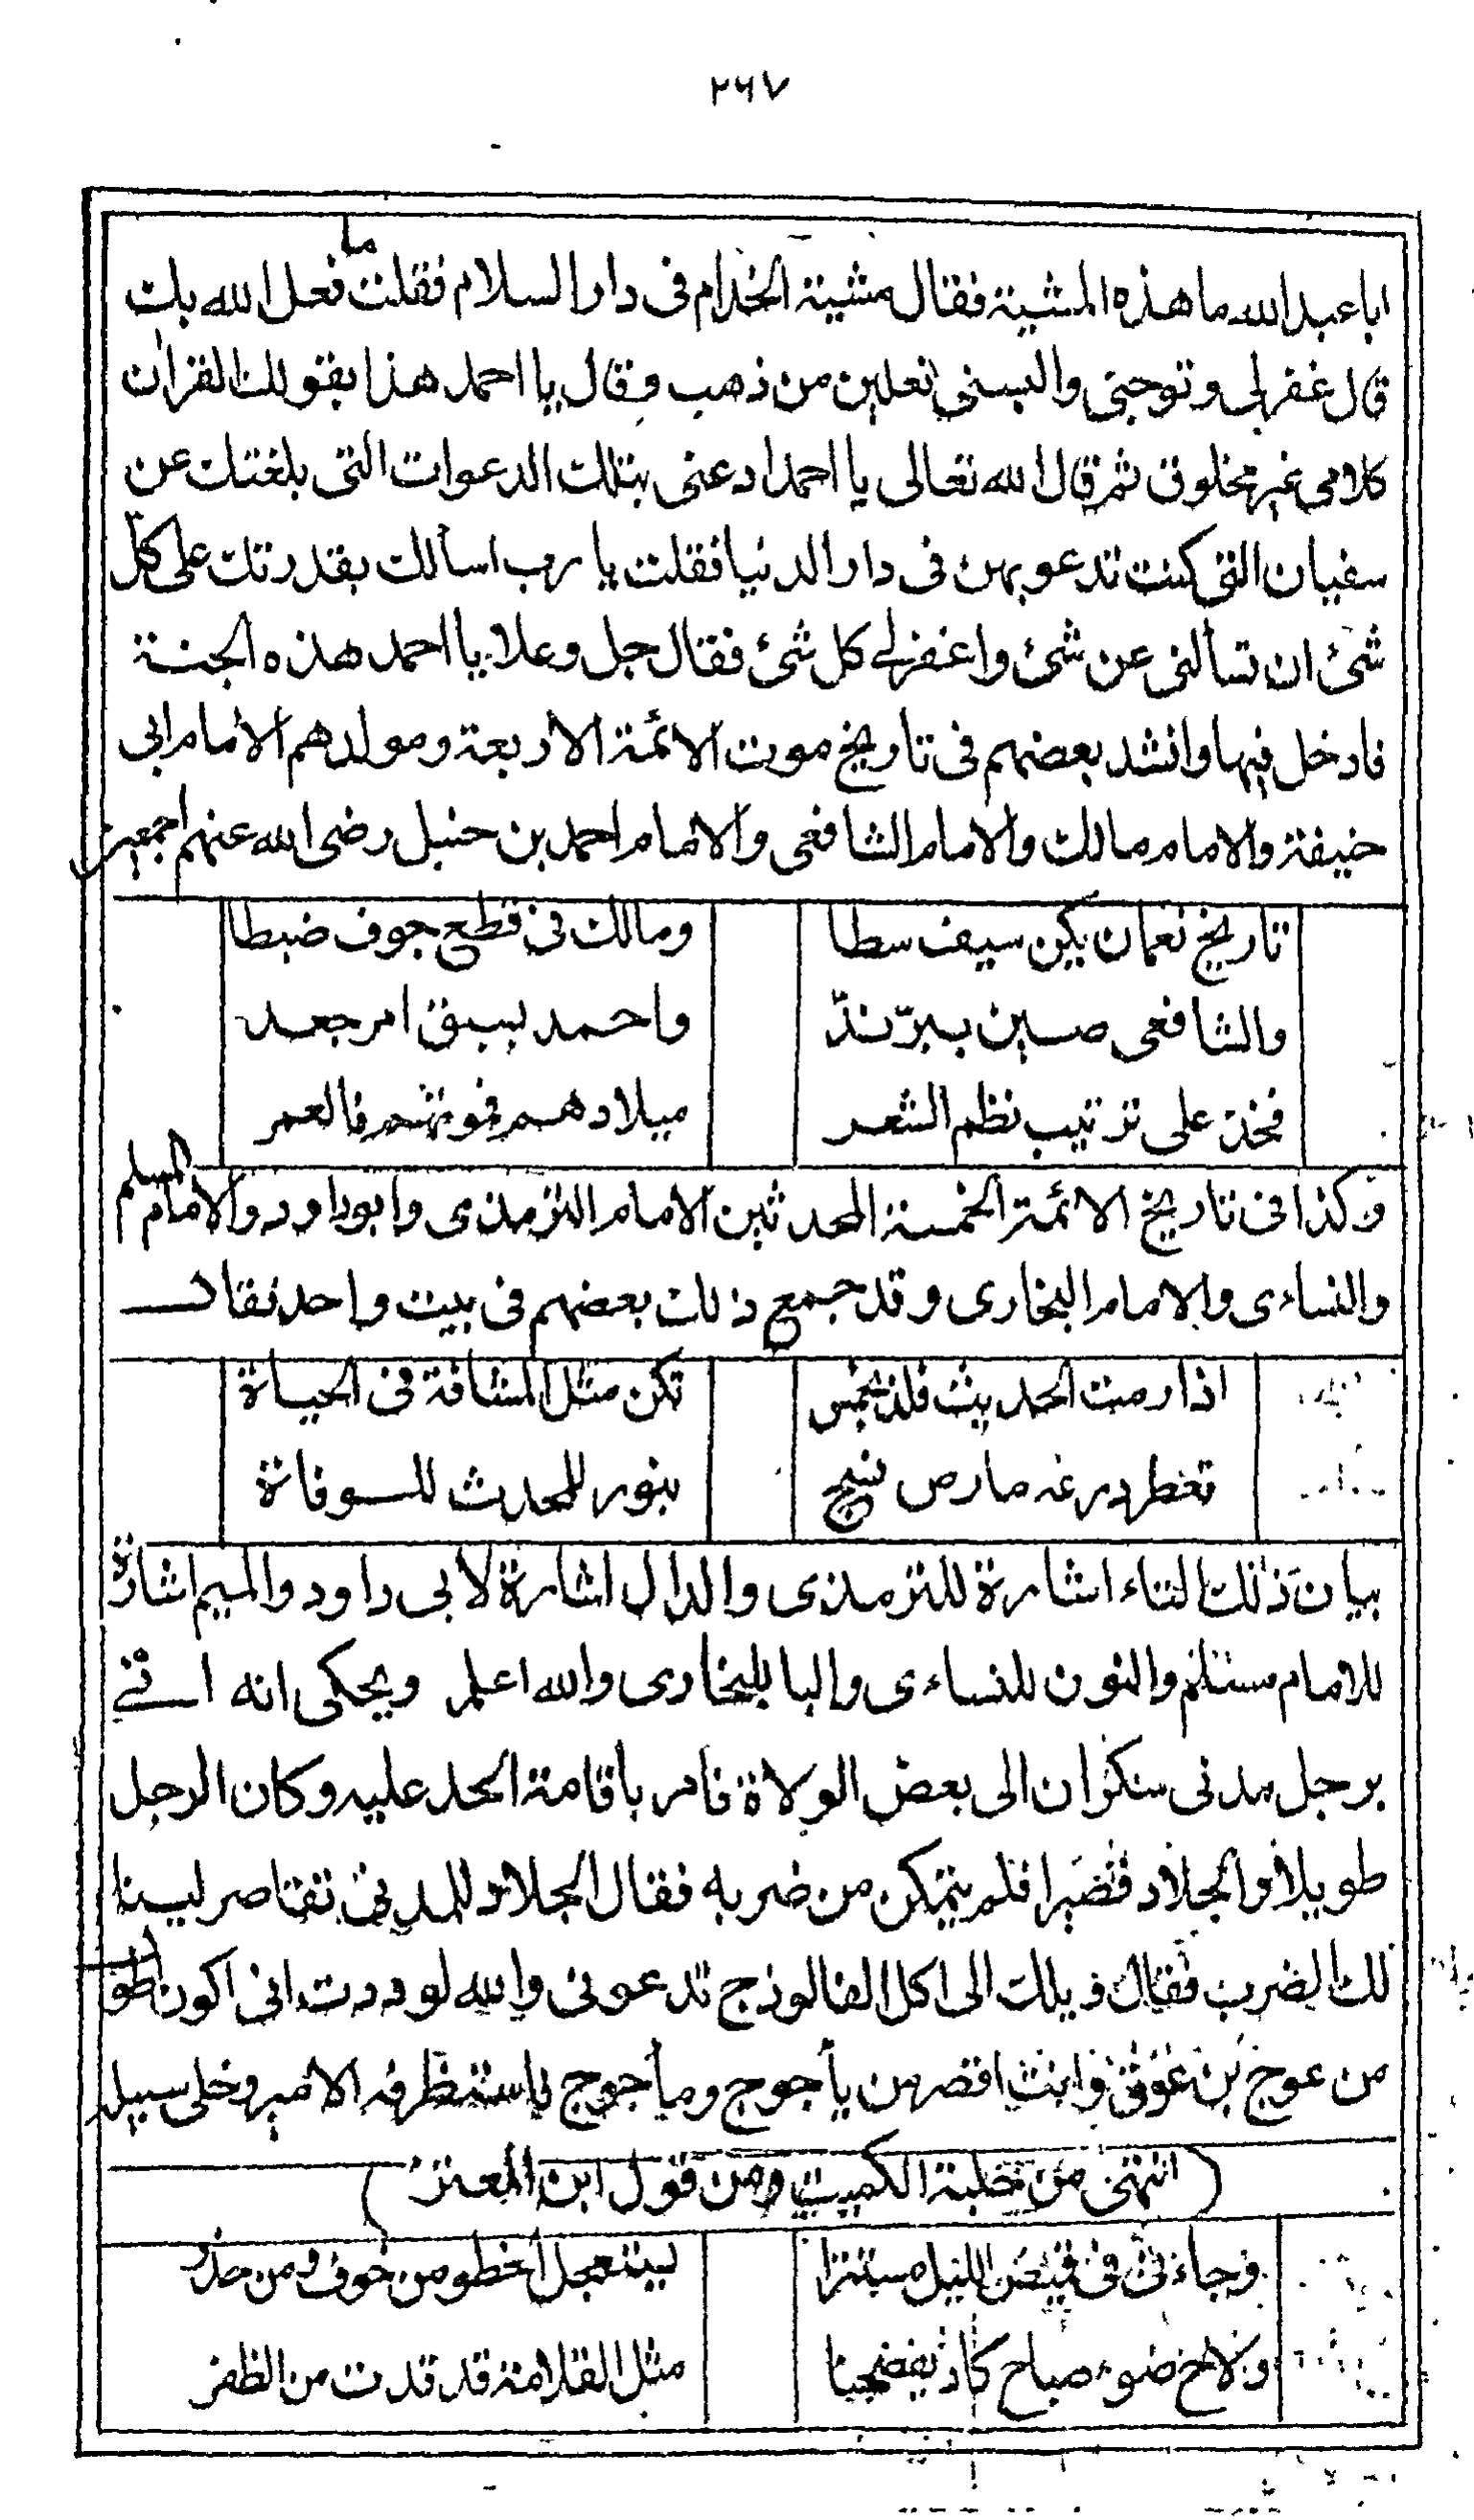 ٢٦٧
اباعبدالله ما هذه المشية فقال مشية الخدام فى دار السلام فقلت ما فعل الله بك
قال غفرلى وتوجنى والبسنى نعلين من ذهب وقال يا احمد هذا بقولك القران
كلامى غير مخلوق ثم قال الله تعالى يا احمد ادعنى بتلك الدعوات التى بلغتك عن
سفيان التى كنت تدعو بهن فى دار الدنيا فقلت يا رب اسألك بقدرتك على كل
شئ ان تسألنى عن شئ واغفرلى كل شئ فقال جل وعلا يا احمد هذه الجنة
فادخل فيها وانشد بعضهم فى تاريخ موت الائمة الاربعة ومولدهم الامام ابى
حنيفة والامام مالك والامام الشافعى والامام احمد بن حنبل رضى الله عنهم اجمعين
تاريخ نعمان يكن سيف سطا ومالك فى قطع جوف ضبطا
والشافعى صين ببرّ ندّ واحمد بسبق امر جعد
فخذ على ترتيب نظم الشعر ميلادهم فموتهم فالعمر
وكذا فى تاريخ الائمة الخمسة المحدثين الامام الترمذى وابوداود والامام المسلم
والنساءى والامام البخارى وقد جمع ذلك بعضهم فى بيت واحد فقال
اذا رمت الحديث فلذ بخمس تكن مثل المشافة فى الحياة
تغطر درغه مارص نيج بنور للمحدث للوفاة
بيان ذلك التاء اشارة للترمذى والدال اشارة لابى داود والميم اشارة
للامام مسلم والنون للنساءى والبا للبخارى والله اعلم ويحكى انه اتى
برجل مدنى سكران الى بعض الولاة فامر باقامة الحد عليه وكان الرجل
طويلا والجلاد قصيرا فلم يتمكن من ضربه فقال الجلاد للمدنى تقاصر لينا
لك الضرب فقال ويلك الى اكل الفالوذج تدعونى والله لوددت انى اكون اطو
من عوج بن عوق وانت اقصر من يأجوج ومأجوج فاستظرفه الامير وخلى سبيله
(انتهى من حلبة الكميت ومن قول ابن المعتز)
وجاءنى فى قميص الليل مستترا يستعجل الخطو من خوف ومن حذر
ولاح ضوء صباح كاد يفضحنا مثل القلامة قد قدت من الظفر